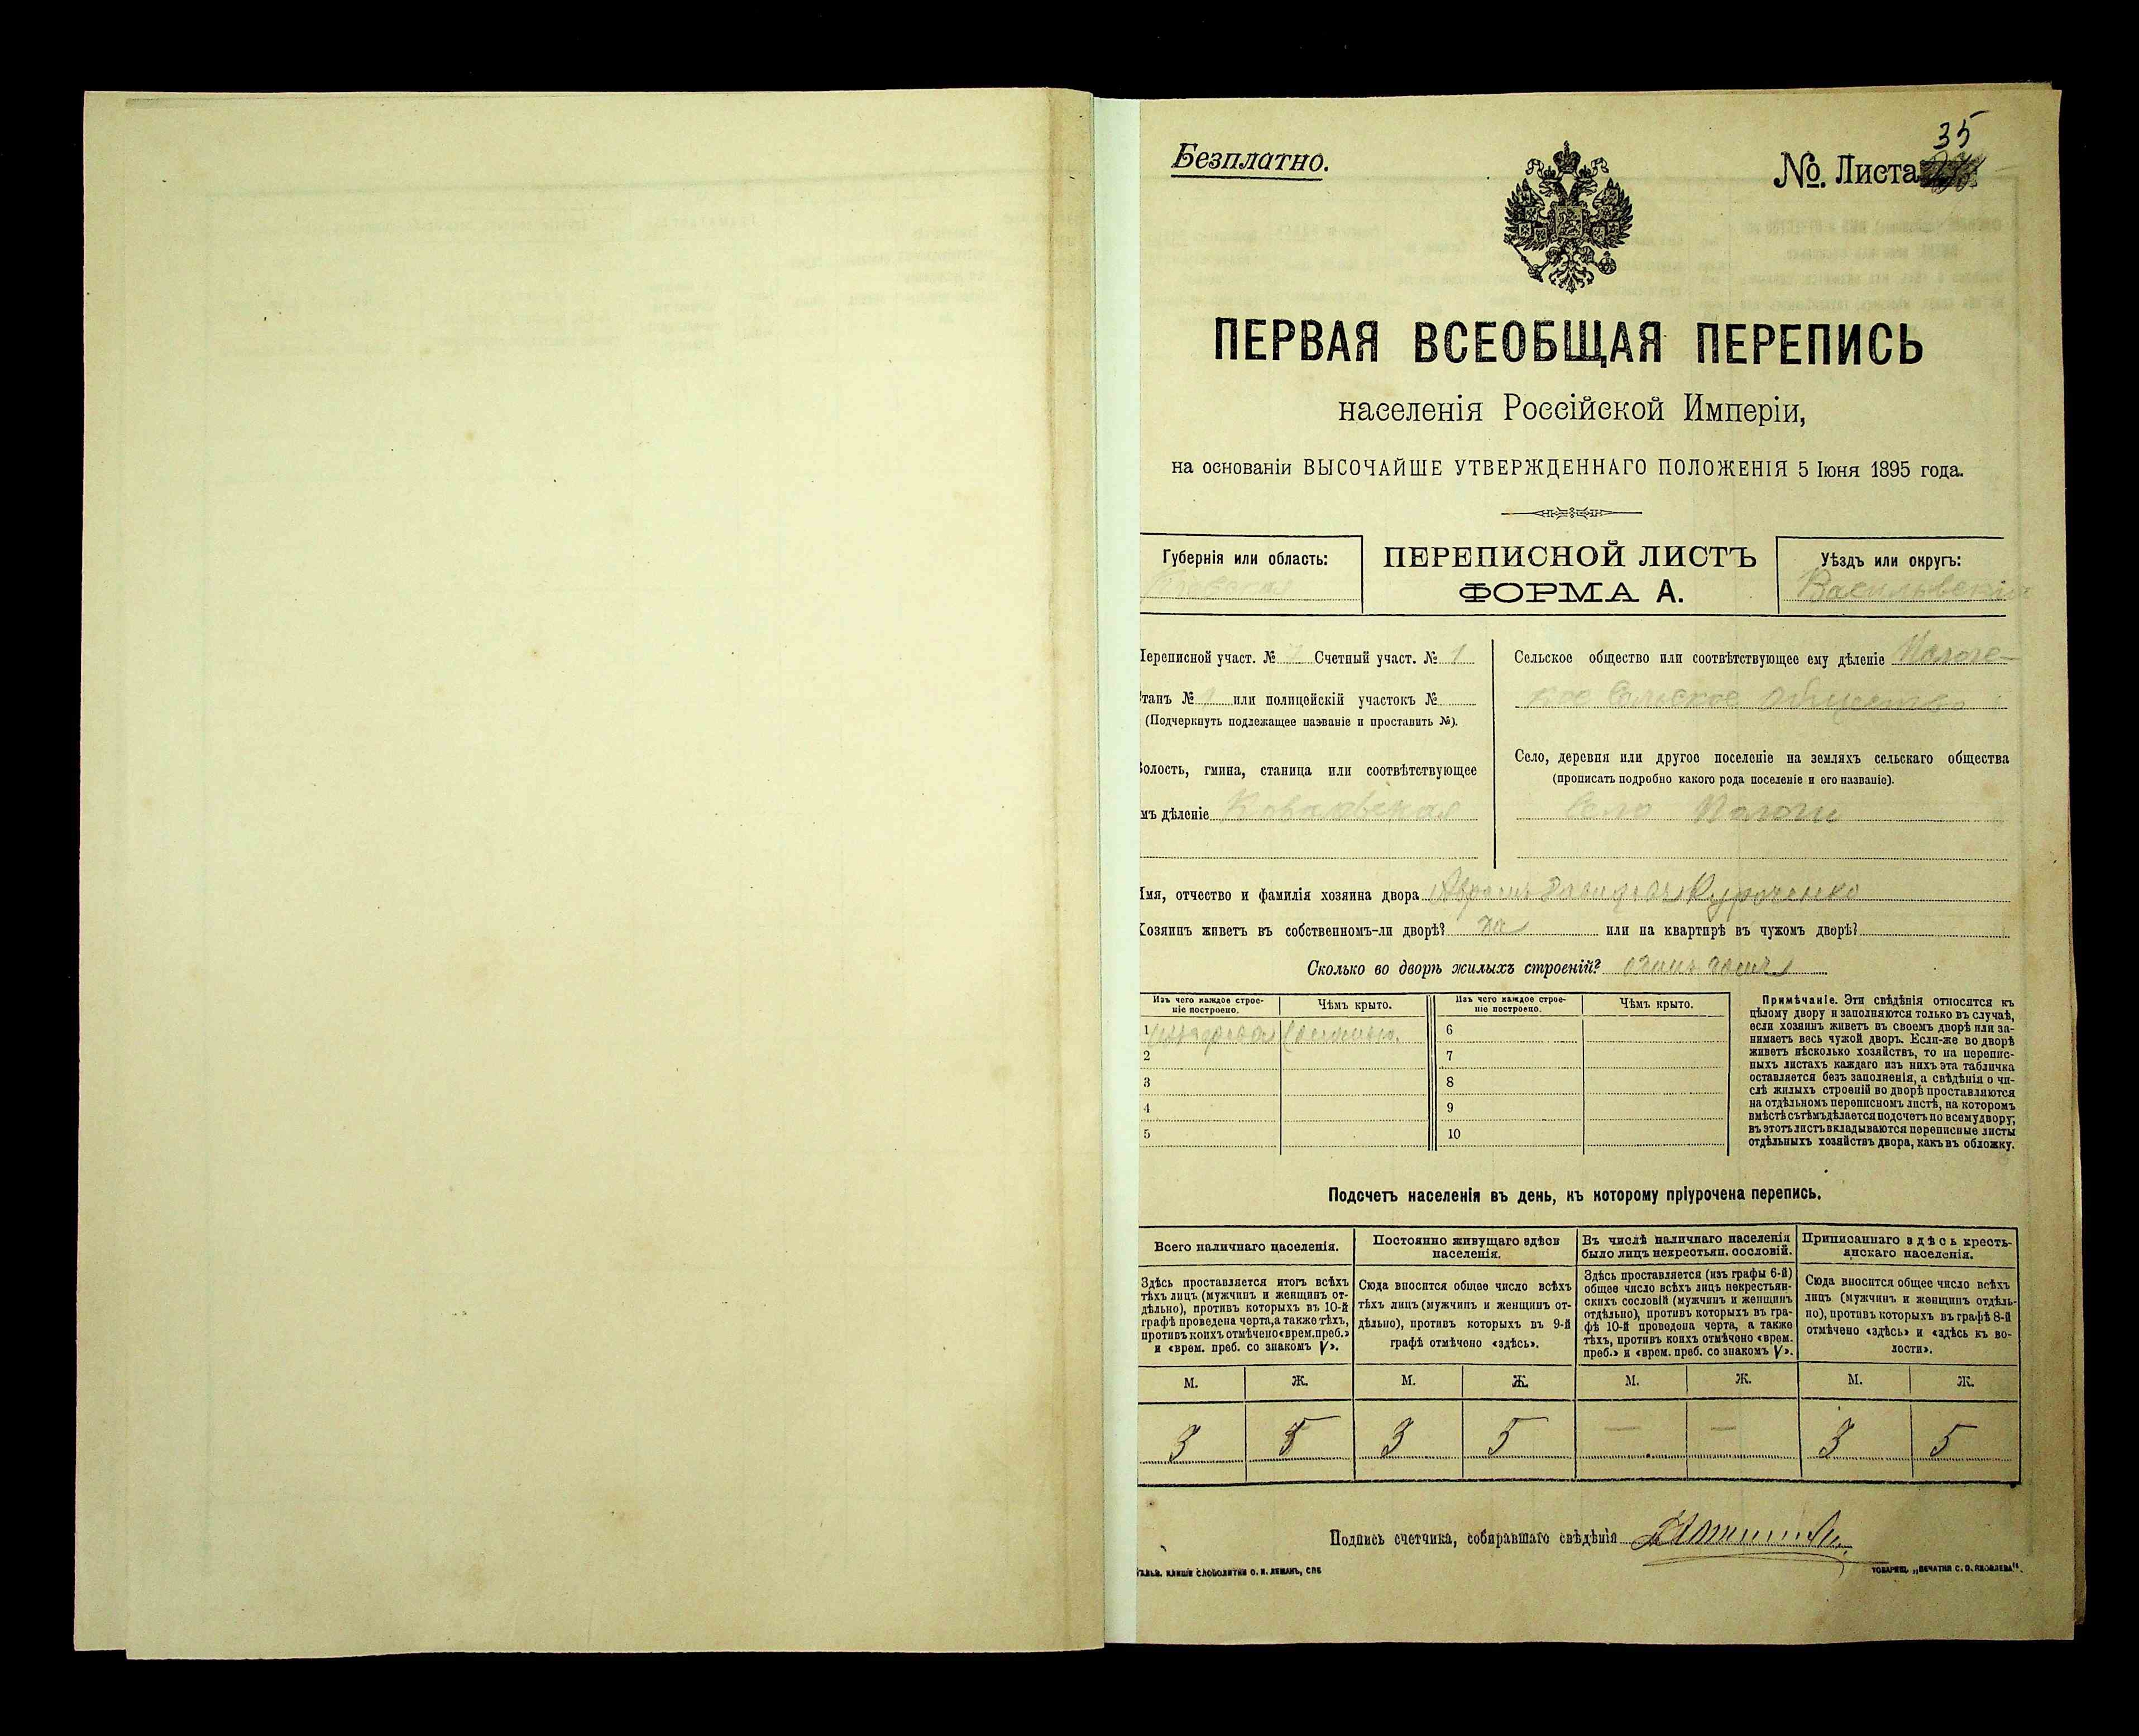 35
Безплатно.
№. Листа
ПЕРВАЯ ВСЕОБЩАЯ ПЕРЕПИСЬ
населенія Россійской Имперіи,
на основаніи ВЫСОЧАЙШЕ УТВЕРЖДЕННАГО ПОЛОЖЕНІЯ 5 Іюня 1895 года.
Губернія или область:
Кіевская
ПЕРЕПИСНОЙ ЛИСТЪ
ФОРМА А.
Уѣздъ или округъ:
Васильевскій
Переписной участ. № 7 Счетный участ. № 1
Станъ № или полицейскій участокъ №
(Подчеркнуть подлежащее названіе и проставить №).
Волость, гмина, станица или соотвѣтствующее
имъ дѣленіе Ковалевская
Сельское общество или соотвѣтствующее ему дѣленіе Пологс-
кое Сельское Общество
Село, деревня или другое поселеніе на земляхъ сельскаго общества
(прописать подробно какого рода поселеніе и его названіе).
Село Пологи
Имя, отчество и фамилія хозяина двора Абрамъ Давидовъ Куроченко
Хозяинъ живетъ въ собственномъ-ли дворѣ? да или на квартирѣ въ чужомъ дворѣ?
Сколько во дворѣ жилыхъ строеній? одинъ домъ
Изъ чего каждое строе-
ніе построено.
Чѣмъ крыто.
Изъ чего каждое строе-
ніе построено.
Чѣмъ крыто.
1 изъ дерева Соломою. 6
2 7
3 8
4 9
5 10
Примѣчаніе. Эти свѣдѣнія относятся къ
цѣлому двору и заполняются только въ случаѣ,
если хозяинъ живетъ въ своемъ дворѣ или за-
нимаетъ весь чужой дворъ. Если-же во дворѣ
живетъ нѣсколько хозяйствъ, то на перепис-
ныхъ листахъ каждаго изъ нихъ эта табличка
оставляется безъ заполненія, а свѣдѣнія о чи-
слѣ жилыхъ строеній во дворѣ проставляются
на отдѣльномъ переписномъ листѣ, на которомъ
вмѣстѣ съ тѣмъ дѣлается подсчетъ по всему двору;
въ этотъ листъ вкладываются переписные листы
отдѣльныхъ хозяйствъ двора, какъ въ обложку.
Подсчетъ населенія въ день, къ которому пріурочена перепись.
Всего наличнаго населенія.
Здѣсь проставляется итогъ всѣхъ
тѣхъ лицъ (мужчинъ и женщинъ от-
дѣльно), противъ которыхъ въ 10-й
графѣ проведена черта, а также тѣхъ,
противъ коихъ отмѣчено «врем. преб.»
и «врем. преб. со знакомъ V».
Постоянно живущаго здѣсь
населенія.
Сюда вносится общее число всѣхъ
тѣхъ лицъ (мужчинъ и женщинъ от-
дѣльно), противъ которыхъ въ 9-й
графѣ отмѣчено «здѣсь».
Въ числѣ наличнаго населенія
было лицъ некрестьян. сословій.
Здѣсь проставляется (изъ графы 6-й)
общее число всѣхъ лицъ некрестьян-
скихъ сословій (мужчинъ и женщинъ
отдѣльно), противъ которыхъ въ гра-
фѣ 10-й проведена черта, а также
тѣхъ, противъ коихъ отмѣчено «врем.
преб.» и «врем. преб. со знакомъ V».
Приписаннаго здѣсь кресть-
янскаго населенія.
Сюда вносится общее число всѣхъ
лицъ (мужчинъ и женщинъ отдѣль-
но), противъ которыхъ въ графѣ 8-й
отмѣчено «здѣсь» и «здѣсь къ во-
лости».
М. Ж. М. Ж. М. Ж. М. Ж.
3 5 3 5 — — 3 5
Подпись счетчика, собиравшаго свѣдѣнія
ТОВАРИЩ. „ПЕЧАТНЯ С. П. ЯКОВЛЕВА“.